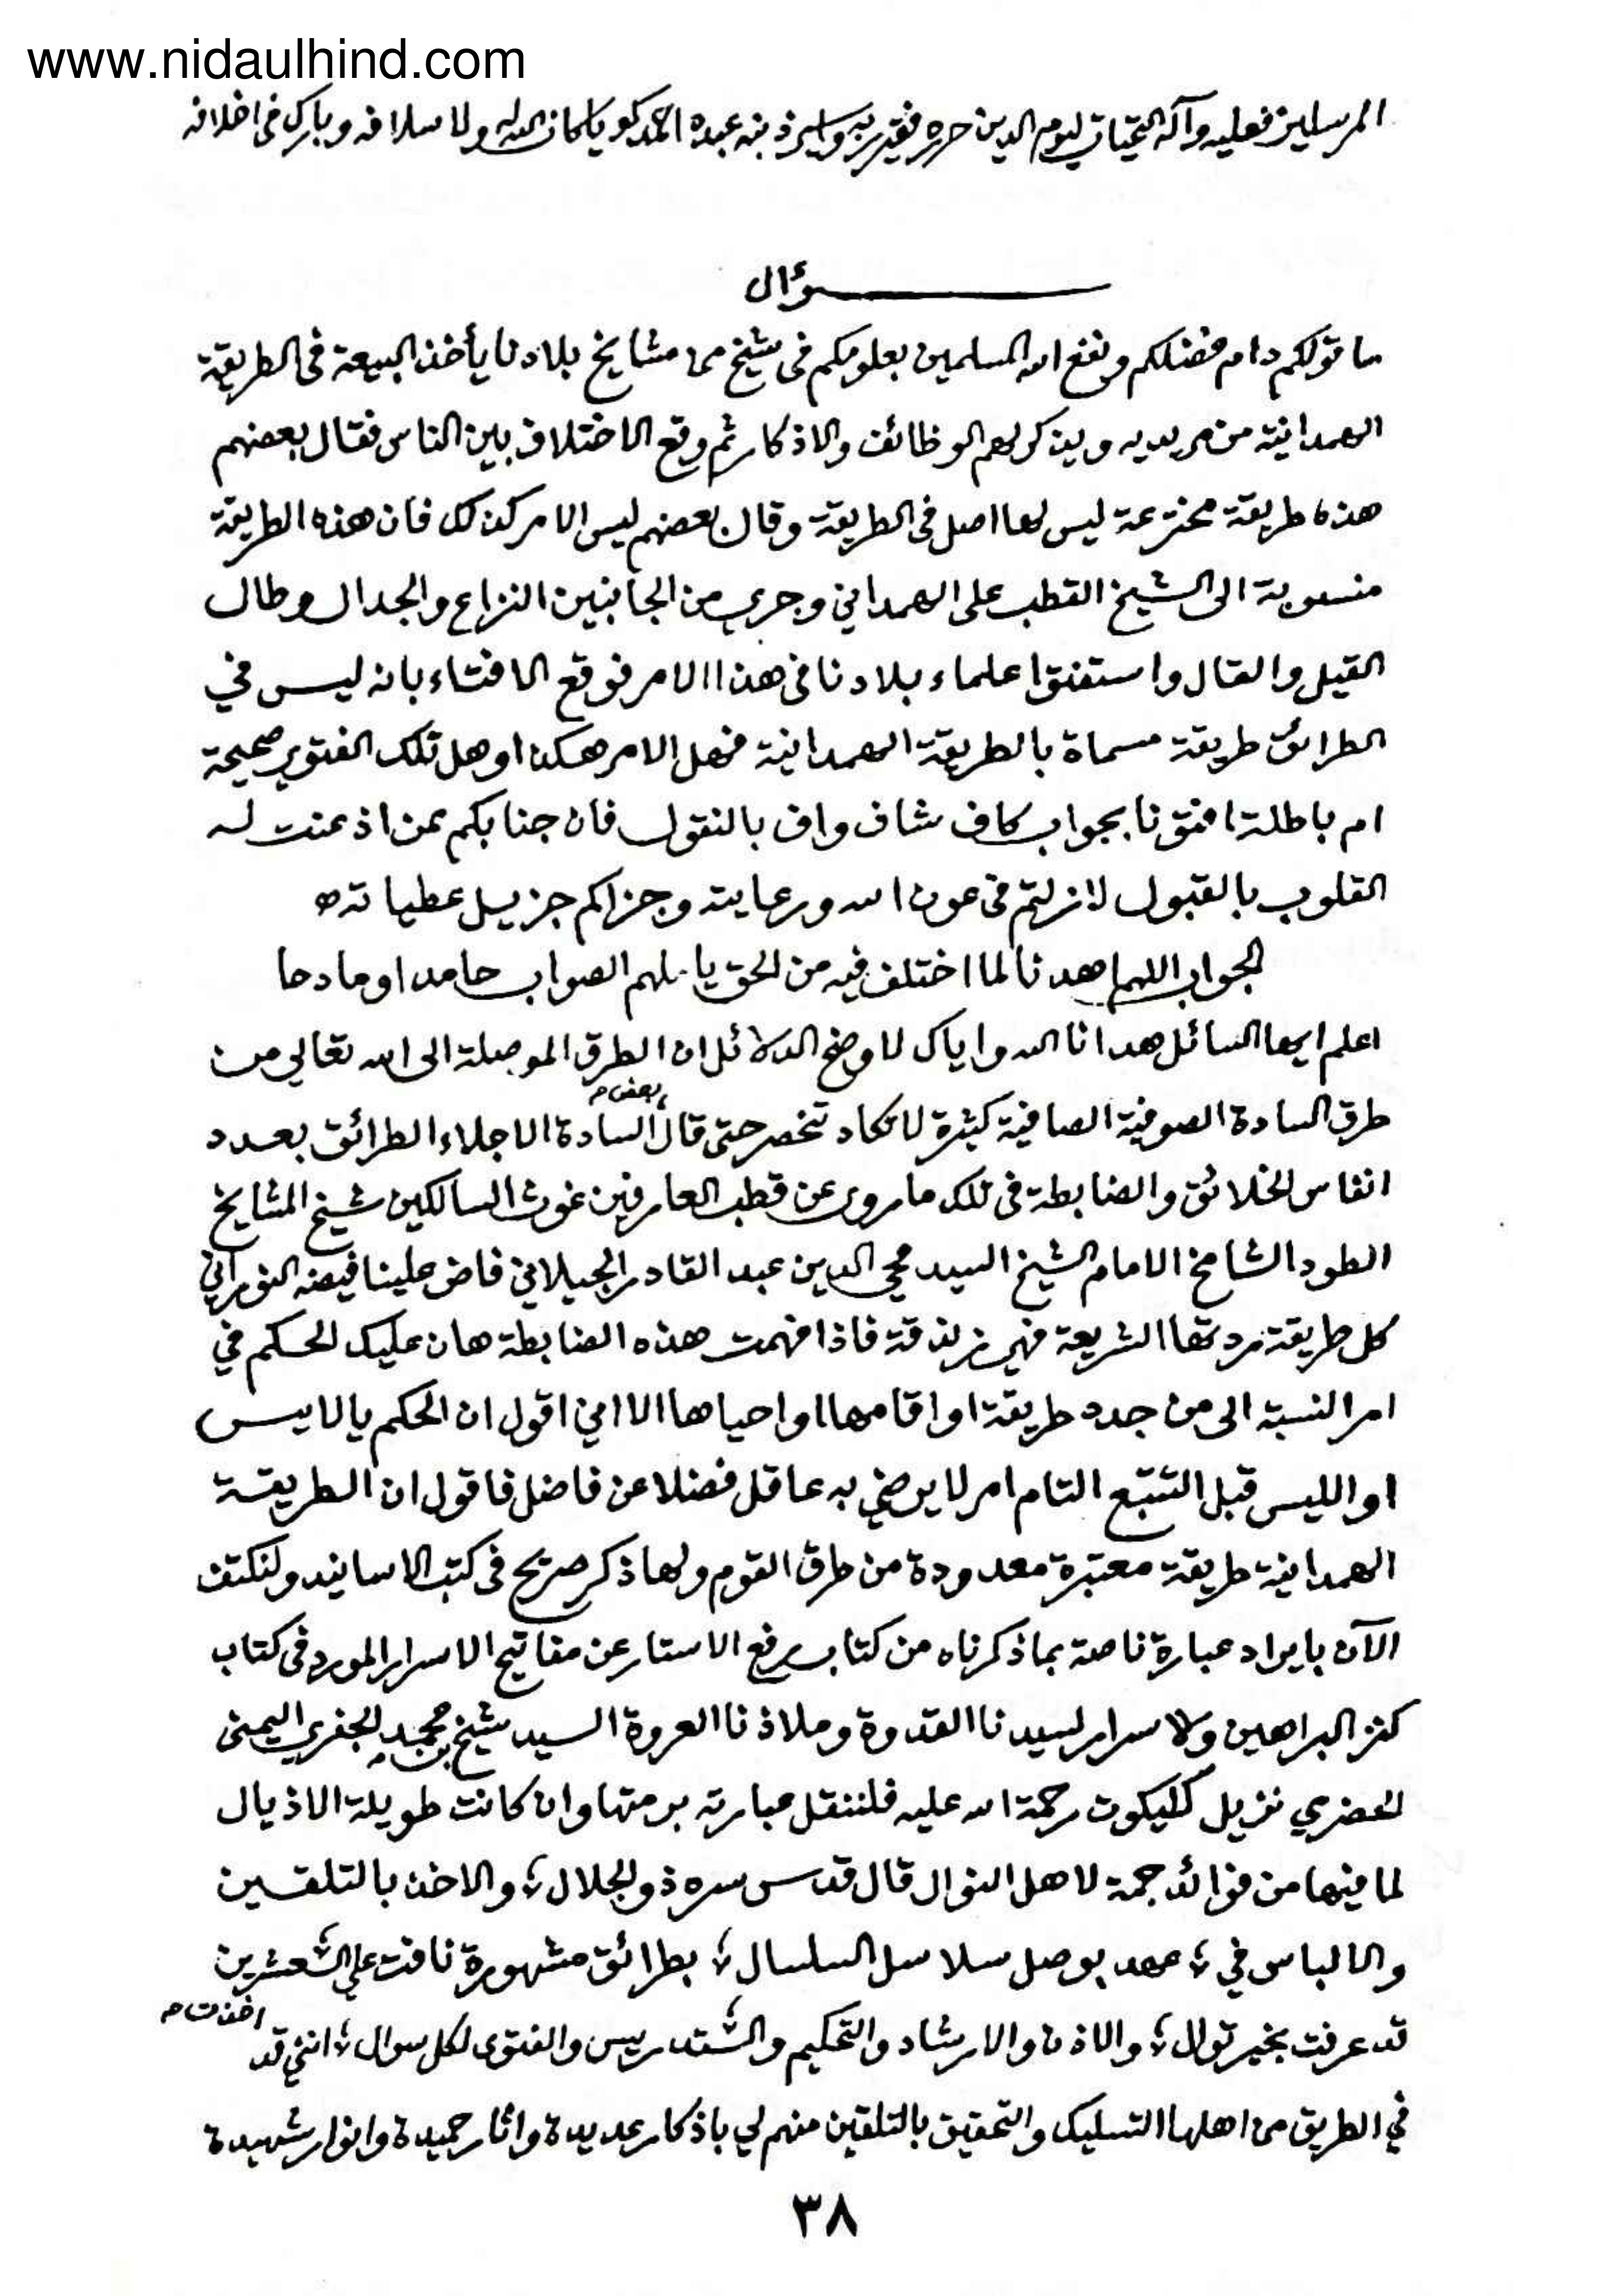 www.nidaulhind.com
المرسلين فعليه وآله التحيات ليوم الدين حرره فقير ربه واسير ذنبه عبده احمد كويا كان الله له ولاسلافه وبارك في اخلافه
سؤال
ما قولكم دام فضلكم ونفع الله المسلمين بعلومكم فى شيخ من مشايخ بلادنا يأخذ البيعة فى الطريقة
الهمدانية من مريديه ويذكر لهم الوظائف والاذكار ثم وقع الاختلاف بين الناس فقال بعضهم
هذه طريقة مخترعة ليس لها اصل فى الطريقة وقال بعضهم ليس الامر كذلك فان هذه الطريقة
منسوبة الى الشيخ القطب على الهمداني وجرى من الجانبين النزاع والجدال وطال
القيل والقال واستفتوا علماء بلادنا فى هذا الامر فوقع الافتاء بانه ليس في
الطرائق طريقة مسماة بالطريقة الهمدانية فهل الامر هكذا او هل تلك الفتوى صحيحة
ام باطلة افتونا بجواب كاف شاف واف بالنقول فان جنابكم ممن اذعنت له
القلوب بالقبول لازلتم فى عون الله ورعايته وجزاكم جزيل عطياته
الجواب اللهم اهدنا لما اختلف فيه من الحق يا ملهم الصواب حامدا ومادحا
اعلم ايها السائل هدانا الله واياك لاوضح الدلائل ان الطرق الموصلة الى الله تعالى من
طرق السادة الصوفية الصافية كثيرة لا تكاد تنحصر حتى قال بعض السادة الاجلاء الطرائق بعدد
انفاس الخلائق والضابطة فى تلك ما روى عن قطب العارفين غوث السالكين شيخ المشايخ
الطود الشامخ الامام الشيخ السيد محي الدين عبد القادر الجيلاني فاض علينا فيضه النوراني
كل طريقة ردتها الشريعة فهى زندقة فاذا فهمت هذه الضابطة هان عليك الحكم في
امر النسبة الى من جدد طريقة او اقامها او احياها الا اني اقول ان الحكم بالايس
او الليس قبل التتبع التام امر لا يرضى به عاقل فضلا عن فاضل فاقول ان الطريقة
الهمدانية طريقة معتبرة معدودة من طرق القوم ولها ذكر صريح فى كتب الاسانيد ولنكتف
الآن بايراد عبارة ناصة بما ذكرناه من كتاب رفع الاستار عن مفاتيح الاسرار المورد فى كتاب
كنز البراهين والاسرار لسيدنا القدوة وملاذنا العروة السيد شيخ بن محمد الجفري اليمنى
الحضرمي نزيل كليكوت رحمة الله عليه فلننقل عبارته برمتها وان كانت طويلة الاذيال
لما فيها من فوائد جمة لاهل النوال قال قدس سره ذو الجلال ؛ والاخذ بالتلقين
والالباس في ؛ عهد بوصل سلاسل السلسال ؛ بطرائق مشهورة نافت على العشرين
قد عرفت بخير توال ؛ والاذن والارشاد والتحكيم والتدريس والفتوى لكل سوال ؛ اننى قد اخذت
في الطريق من اهلها التسليك والتحقيق بالتلقين منهم لي باذكار عديدة واثار حميدة وانوار شهيدة
٣٨